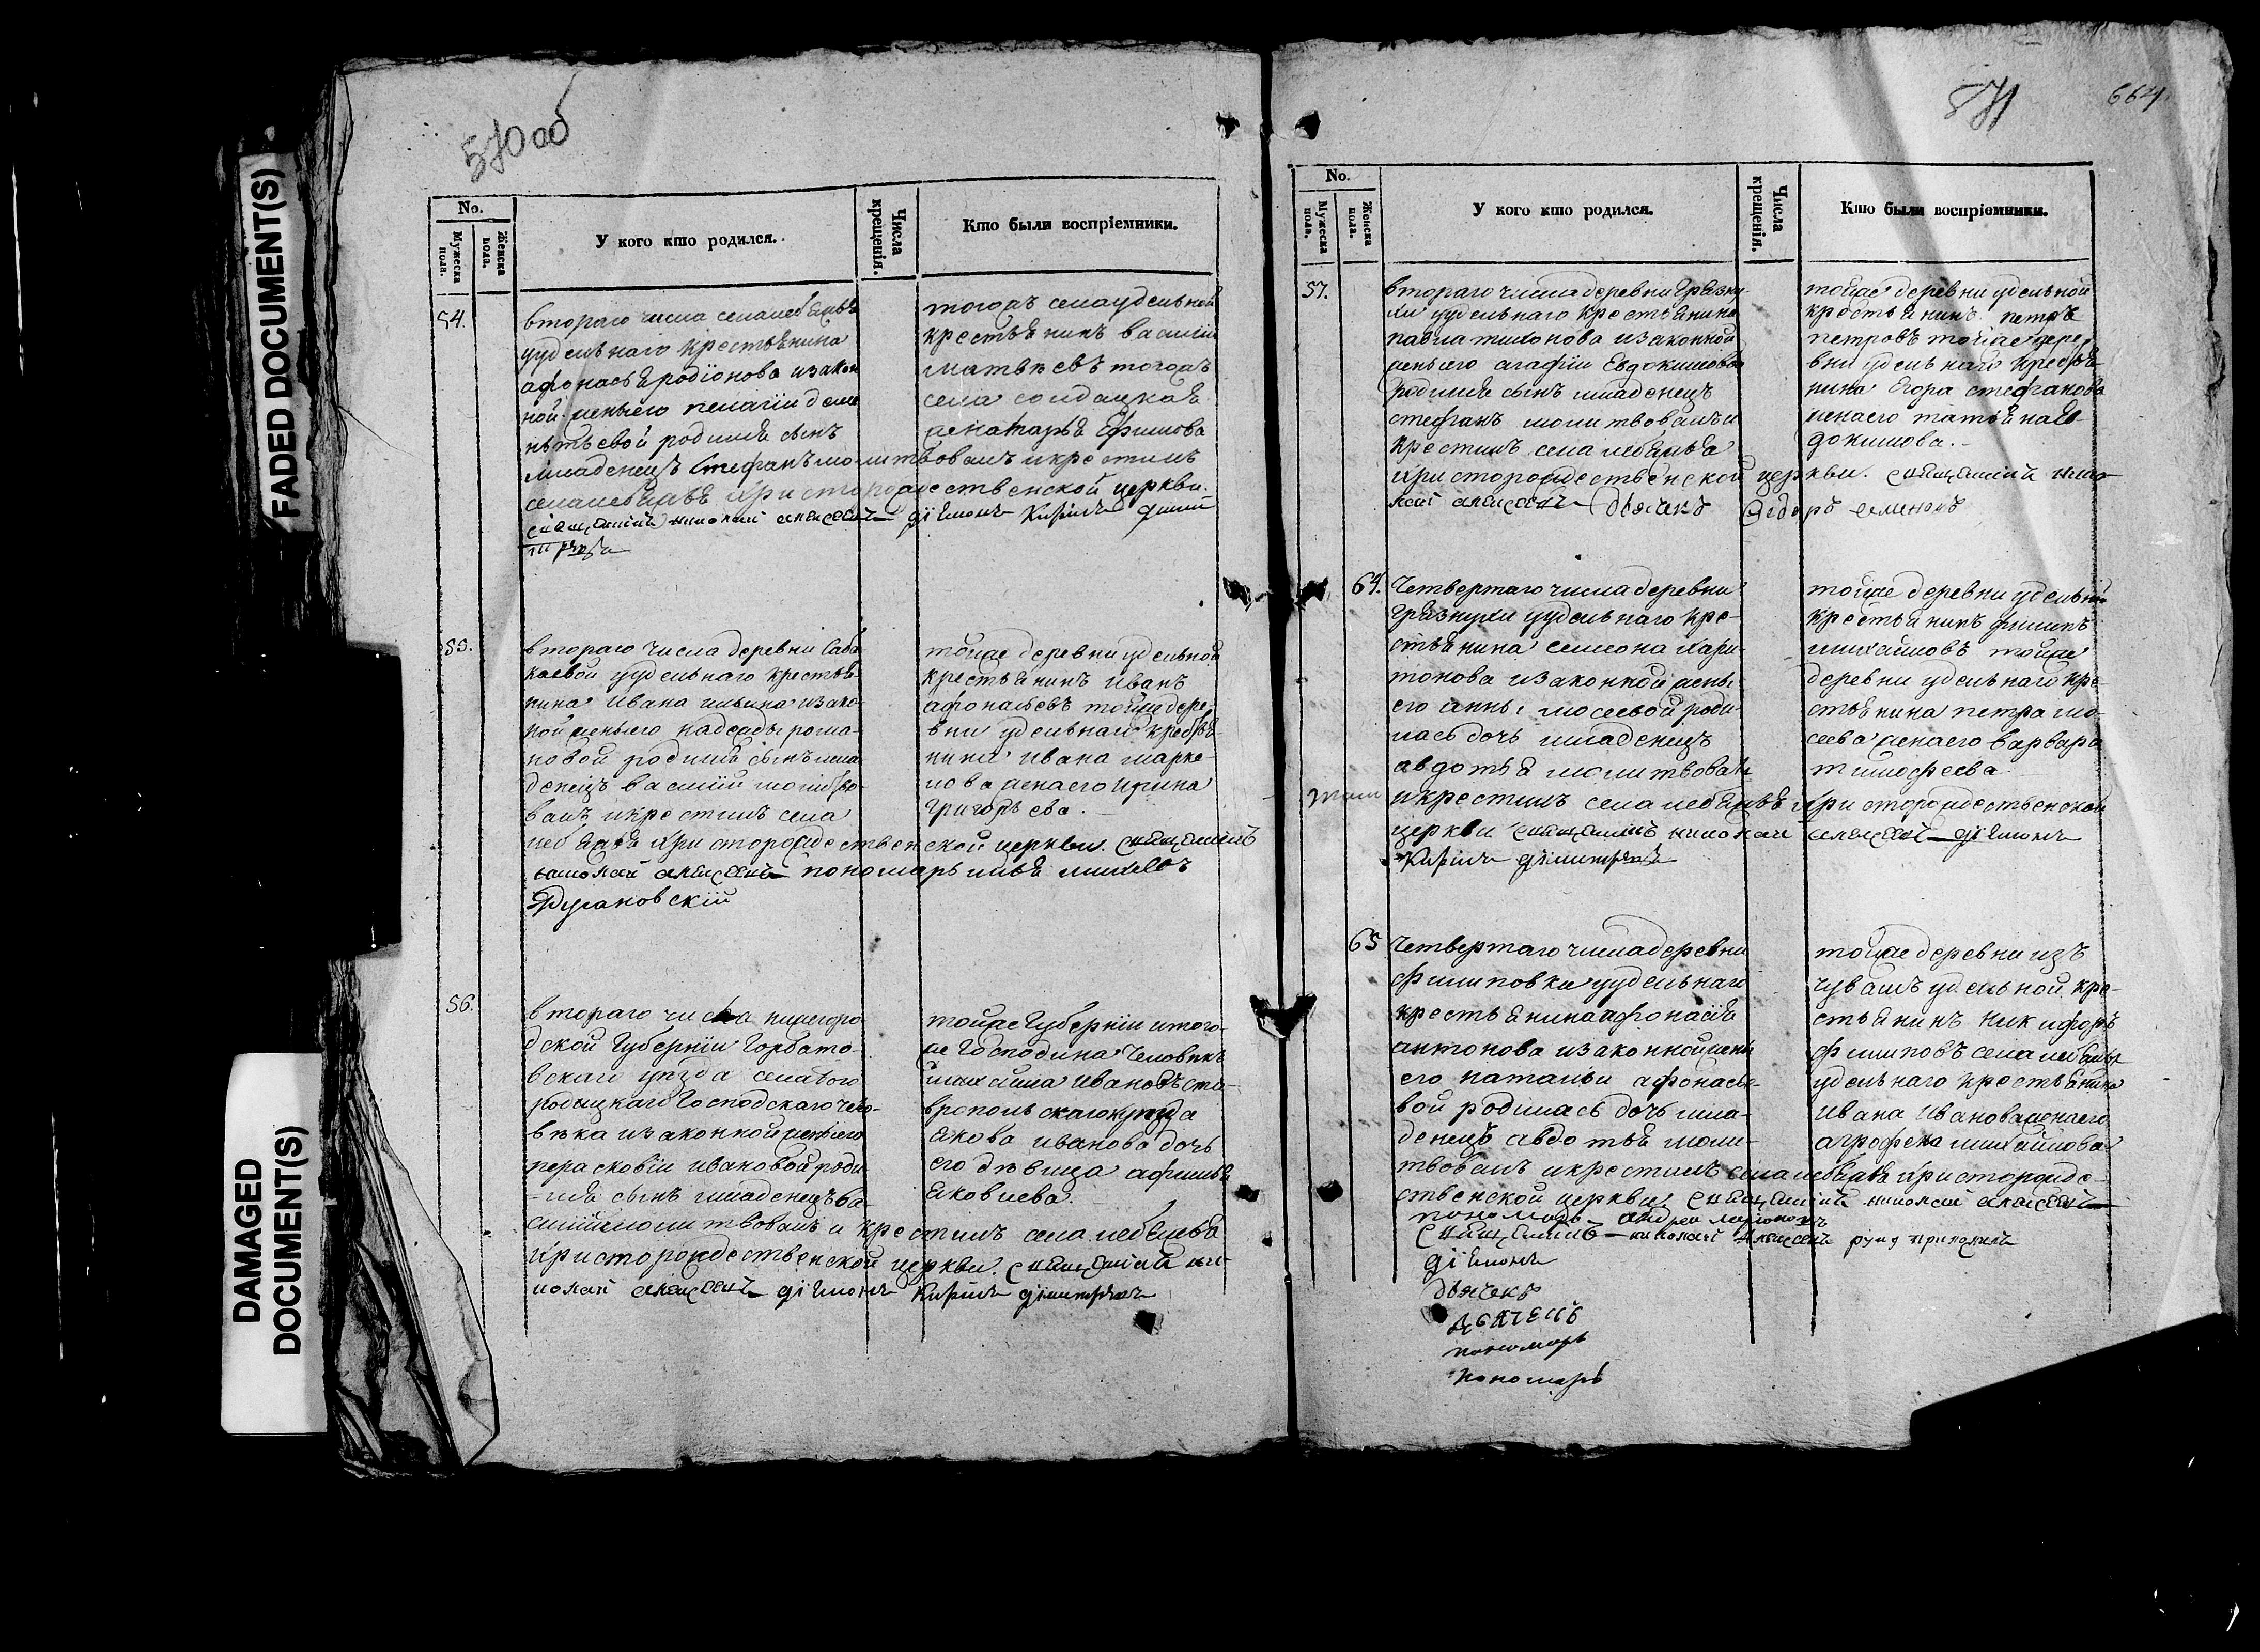 FADED DOCUMENT(S)
DAMAGED DOCUMENT(S)
570 об
No.
Мужеска пола.
Женска пола.
У кого кто родился.
Числа крещенія.
Кто были воспріемники.
54.
втораго числа села
уудельнаго крестьянина
афонасья родіонова изакон
ной женыего пелагіи деме
нтьевой родился сынъ
младенецъ Стефанъ молитвовалъ икрестилъ
села христорождественской церкви.
священникъ николай алексеевъ діяконъ Кирилъ
тогожъ села удельной
крестьянинъ василій
матвеевъ тогожъ
села солдацкая
жена марья Ефимова
55.
втораго числа деревни Саба
каевой удельнаго крестья
нина Ивана ильина изако
ной женыего надежды рома
новой родился сынъ мла
денецъ василій молитво
валъ икрестилъ села
христорождественской церкви. священникъ
николай алексеевъ пономарь илья
тойже деревни удельной
крестьянинъ Иванъ
афонасьевъ тойже дере
вни удельнаго крестья
нина ивана марке
лова женаего ирина
григорьева.
56.
втораго числа нижегоро
дской Губерніи Горбато
вскаго уезда села бого
родицкаго Господскаго чело
века изаконной женыего
перасковіи ивановой роди
лся сынъ младенецъ ва
силій молитвовалъ и крестилъ села
христорождественской церкви. священникъ ни
колай алексеевъ діяконъ Кирилъ димитріевъ
тойже Губерніи итого
же Господина Человекъ
Ивановъ ста
вропольскаго уезда
Якова иванова дочь
его девица афимья
Яковлева.
571
664
No.
Мужеска пола.
Женска пола.
У кого кто родился.
Числа крещенія.
Кто были воспріемники.
57.
втораго числа деревни Грязну
хи удельнаго крестьянина
павла изаконной
женыего агафіи Евдокимовой
родился сынъ младенецъ
стефанъ молитвовалъ и
крестилъ села
христорождественской церкви. священникъ нико
лай алексеевъ дьячекъ Федоръ семеновъ
тойже деревни удельной
крестьянинъ петръ
петровъ тойже дере
вни удельнаго крестья
нина Егора стефанова
женаего татьяна Ев
докимова.
64.
Четвертаго числа деревни
Грязнухи уудельнаго кре
стьянина семена хари
тонова изаконной жены
его анны мосеевой роди
лась дочь младенецъ
авдотья молитвовалъ
икрестилъ села христорождественской
церкви священникъ николай алексеевъ діяконъ
Кирилъ димитріевъ
тойже деревни удельной
крестьянинъ филипъ
михайловъ тойже
деревни удельнаго кре
стьянина петра мо
сеева женаего варвара
тимофеева
65
Четвертаго числа деревни
филиповки уудельнаго
крестьянина афонасія
антонова изаконной жены
его натальи афонасье
вой родилась дочь мла
денецъ авдотья моли
твовалъ икрестилъ села христорожде
ственской церкви священникъ николай алексеевъ
пономарь андрей
священникъ николай алексеевъ руку приложилъ
діяконъ
дьячекъ
дьячекъ
пономарь
пономарь
тойже деревни изъ
чувашъ удельной кре
стьянинъ никифоръ
филиповъ села
удельнаго крестьянина
Ивана Иванова женаего
агрофена михайлова